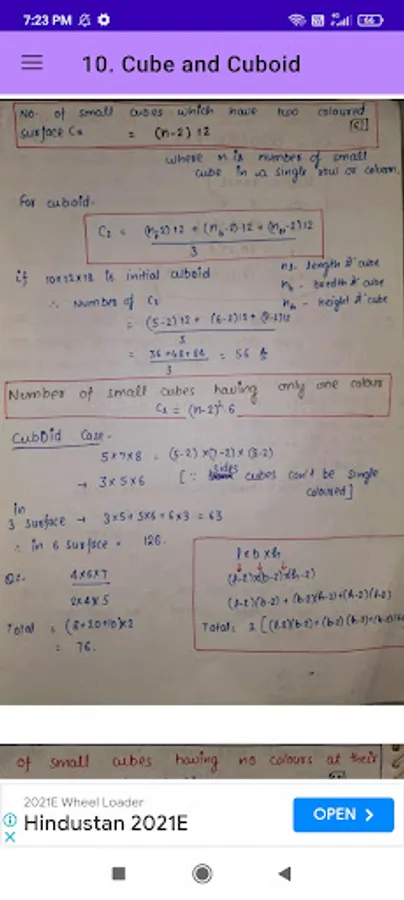 7:23 PM
66
10. Cube and Cuboid
No. of small cubes which have two coloured
surface C2 = (n-2) 12
where n is number of small
cube in a single row or column.
For cuboid-
C2 = (nl-2)12 + (nb-2)12 + (nh-2)12
3
if 10x12x18 is initial cuboid
nl- length of cube
nb - breadth of cube
nh - height of cube
∴ Number of C2
= (5-2)12 + (6-2)12 + (9-2)12
3
= 36+48+84 = 56
3
Number of small cubes having only one colour
C1 = (n-2)² 6
Cuboid Case-
5x7x8 = (5-2) x(7-2) x (8-2)
→ 3x5x6 [∵ sides cubes can't be single
coloured]
in
3 surface → 3x5 + 5x6 + 6x3 = 63
∴ in 6 surface = 126.
l x b x h
(l-2)x(b-2)x(h-2)
(l-2)(b-2) + (b-2)(h-2)+(h-2)(l-2)
Total: 2 [(l-2)(b-2)+(b-2)(h-2)+
4x6x7
2x4x5
Total = (8+20+10)x2
= 76.
of small cubes having no colours at their
2021E Wheel Loader
Hindustan 2021E
OPEN >